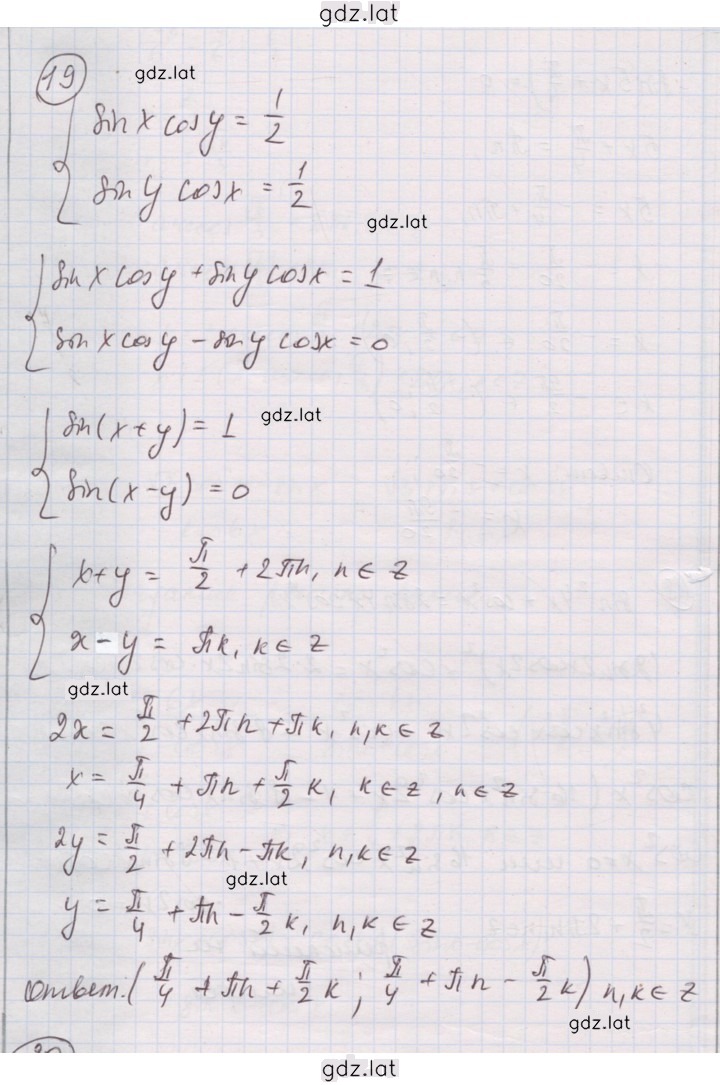 gdz.lat
19
gdz.lat
sin x cos y = 1/2
sin y cos x = 1/2
gdz.lat
sin x cos y + sin y cos x = 1
sin x cos y - sin y cos x = 0
gdz.lat
sin(x+y) = 1
sin(x-y) = 0
x+y = π/2 + 2πn, n ∈ Z
x - y = πk, k ∈ Z
gdz.lat
2x = π/2 + 2πn + πk, n,k ∈ Z
x = π/4 + πn + π/2 k, k ∈ Z, n ∈ Z
2y = π/2 + 2πn - πk, n,k ∈ Z
gdz.lat
y = π/4 + πn - π/2 k, n,k ∈ Z
ответ: (π/4 + πn + π/2 k; π/4 + πn - π/2 k) n,k ∈ Z
gdz.lat
gdz.lat